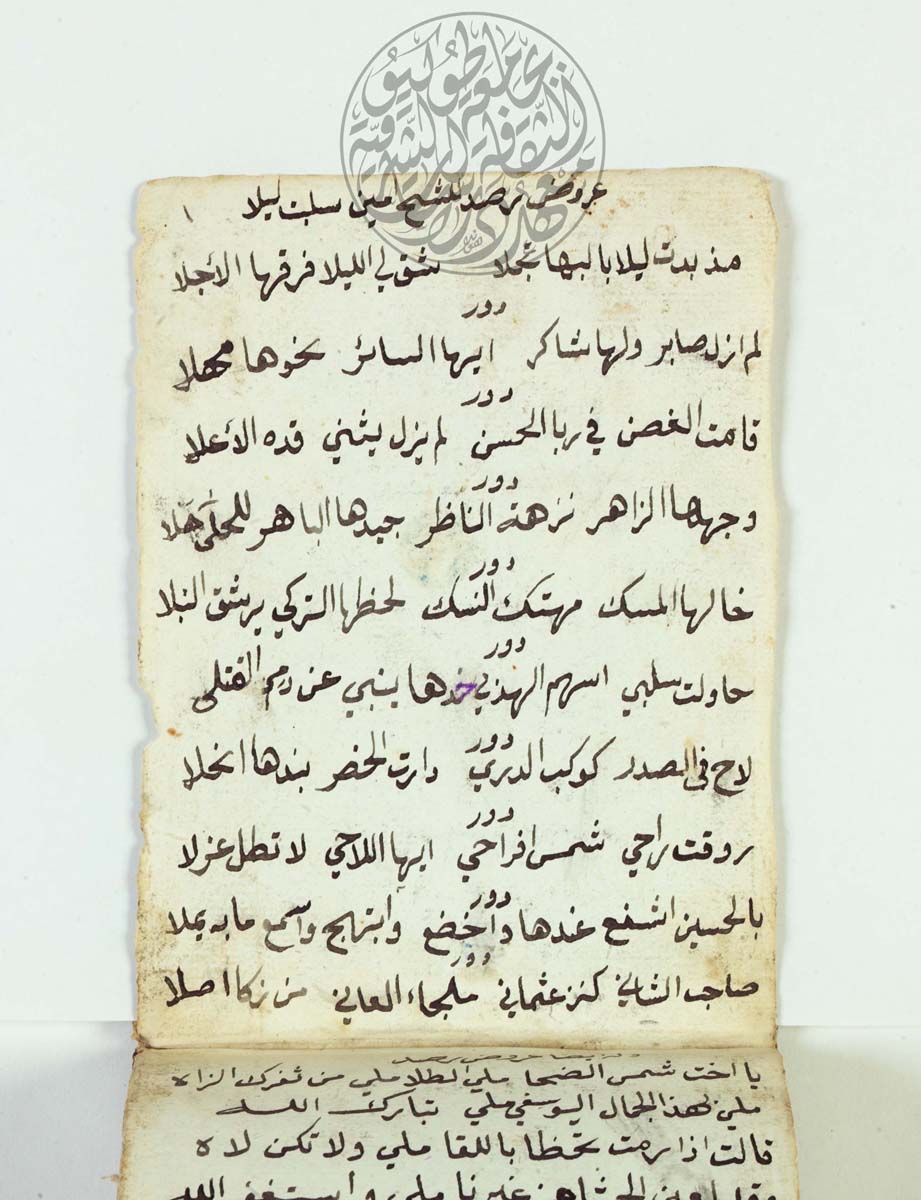 عروض رصد للشيخ امين سلبت ليلا
١
مذ بدت ليلا بالبها تجلا شق لي الليلا فرقها الأجلا
دور
لم ازل صابر ولها شاكر ايها السائر نحوها مهلا
دور
قامت الغصن في ربا الحسن لم يزل يثني قده الأعلا
دور
وجهها الزاهر نزهة الناظر جيدها الباهر للحلى حلا
دور
خالها المسك مهتك النسك لحظها التركي يرشق النبلا
دور
حاولت سلبي اسهم الهدبي خدها ينبي عن دم القتلى
دور
لاح في الصدر كوكب الدري دارت الخصر بندها انحلا
دور
روقت راحي شمس افراحي ايها اللاحي لا تطل عزلا
دور
بالحسين اشفع عندها واخضع وابتهج واسمع ما به يملا
دور
صاحب الشاني كنز عثماني ملجاء العاني من زكا اصلا
يا اخت شمس الضحا ملي الطلا ملي من ثغرك الزاه
ملي لهذ الجمال اليوسفي ملي تبارك الله
قالت اذا رمت تحظا باللقا ملي ولا تكن لاه